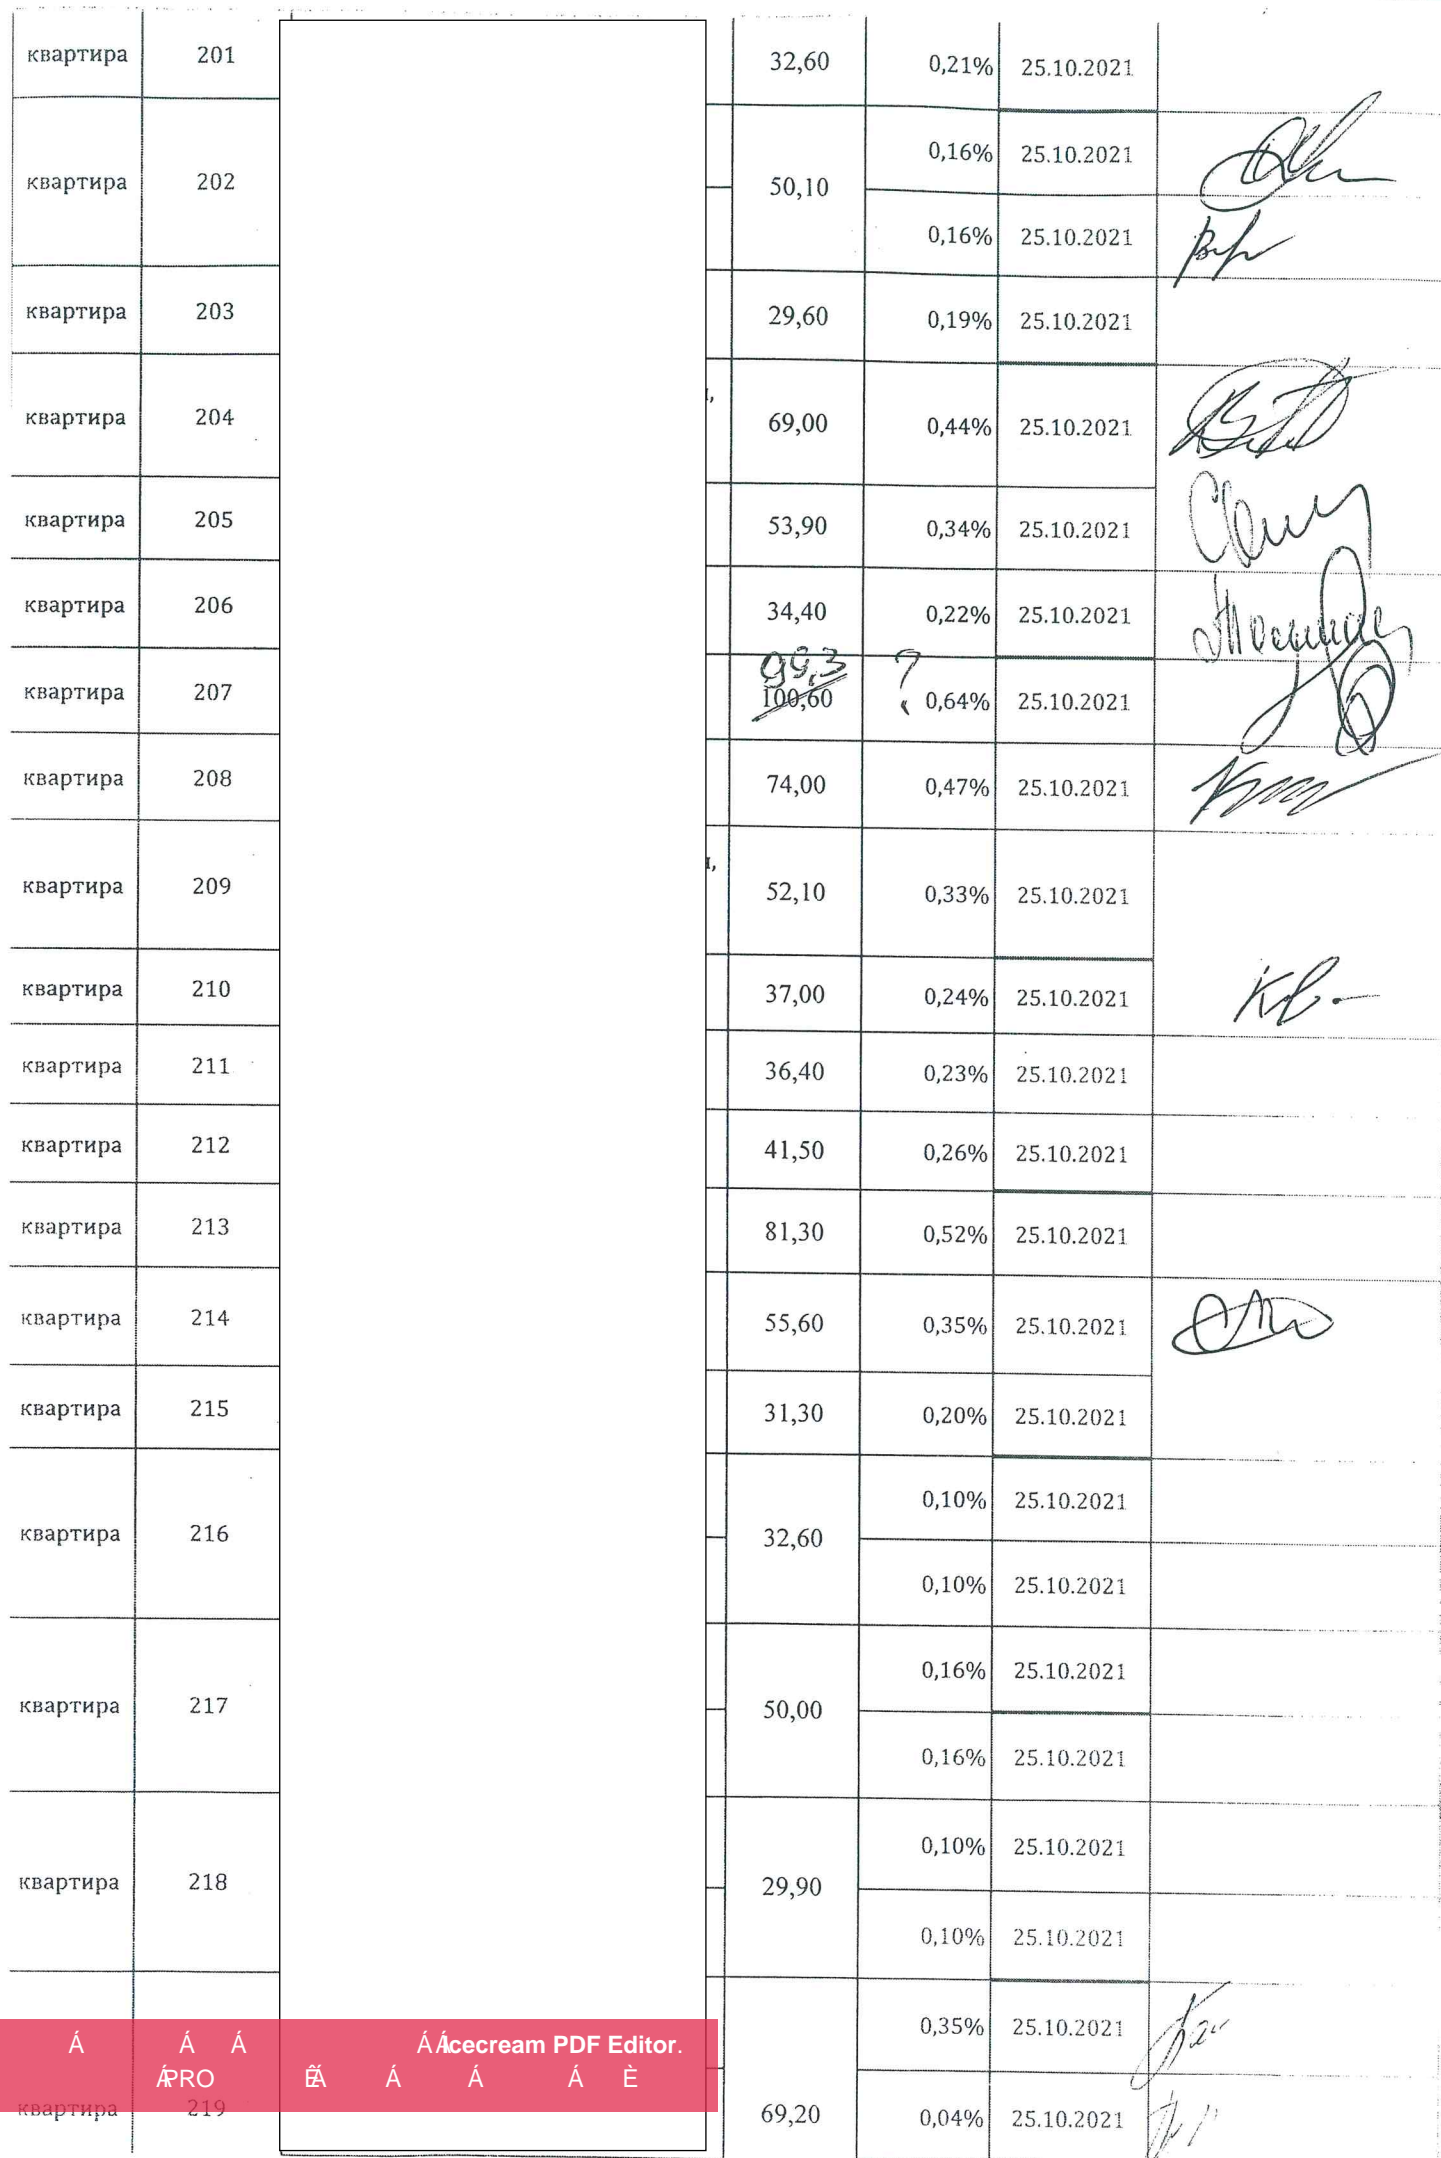 квартира 201 32,60 0,21% 25.10.2021
0,16% 25.10.2021
квартира 202 50,10
0,16% 25.10.2021
квартира 203 29,60 0,19% 25.10.2021
квартира 204 69,00 0,44% 25.10.2021
квартира 205 53,90 0,34% 25.10.2021
квартира 206 34,40 0,22% 25.10.2021
99,3 ?
квартира 207 100,60 0,64% 25.10.2021
квартира 208 74,00 0,47% 25.10.2021
квартира 209 52,10 0,33% 25.10.2021
квартира 210 37,00 0,24% 25.10.2021
квартира 211 36,40 0,23% 25.10.2021
квартира 212 41,50 0,26% 25.10.2021
квартира 213 81,30 0,52% 25.10.2021
квартира 214 55,60 0,35% 25.10.2021
квартира 215 31,30 0,20% 25.10.2021
0,10% 25.10.2021
квартира 216 32,60
0,10% 25.10.2021
0,16% 25.10.2021
квартира 217 50,00
0,16% 25.10.2021
0,10% 25.10.2021
квартира 218 29,90
0,10% 25.10.2021
0,35% 25.10.2021
Á Á Á ÁÁIcecream PDF Editor.
ÁPRO Á Á Á È
квартира 219 69,20 0,04% 25.10.2021